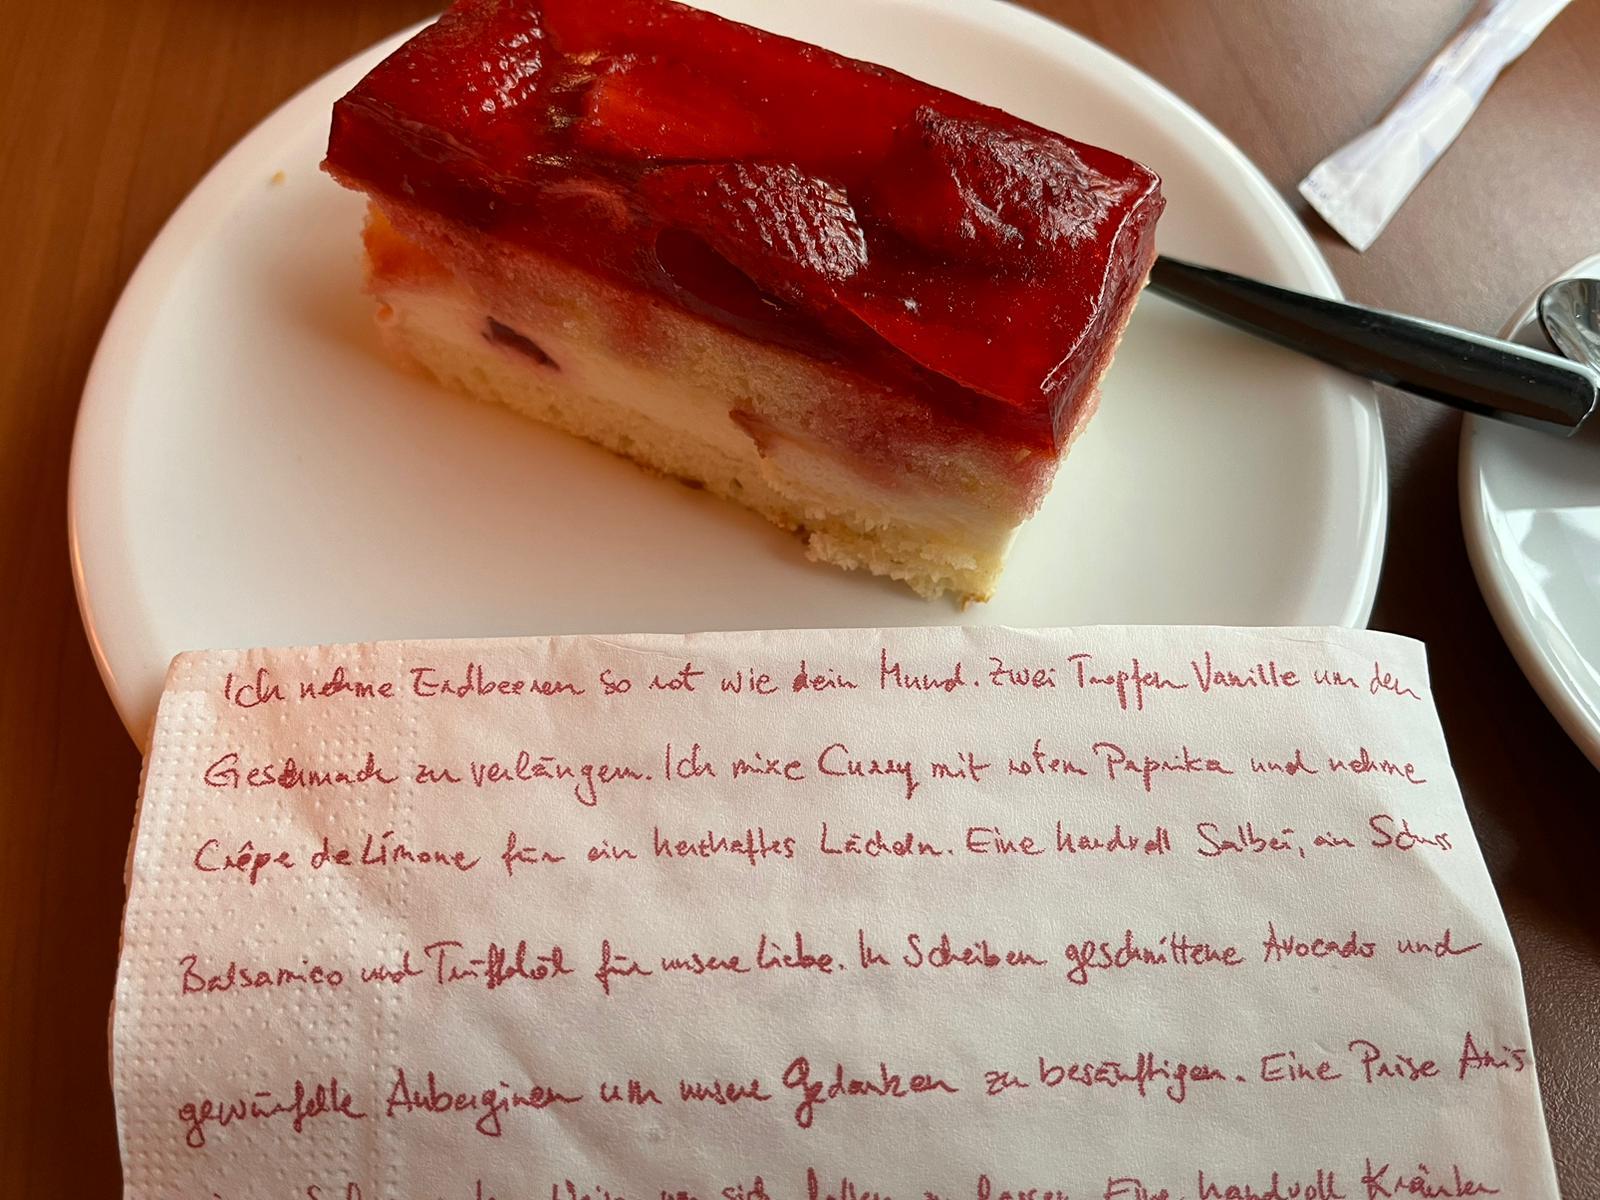 Ich nehme Erdbeeren so rot wie dein Mund. Zwei Tropfen Vanille um den
Geschmack zu verlängern. Ich mixe Curry mit rotem Paprika und nehme
Crêpe de Limone für ein herzhaftes Lächeln. Eine handvoll Salbei, ein Schuss
Balsamico und Trüffelöl für unsere Liebe. In Scheiben geschnittene Avocado und
gewürfelte Auberginen um unsere Gedanken zu besänftigen. Eine Prise Anis
Wein um sich fallen zu lassen. Eine handvoll Kräuter